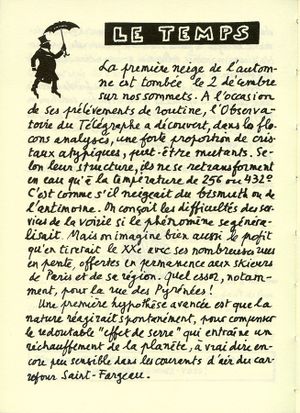 LE TEMPS
La première neige de l'autom-
ne est tombée le 2 décembre
sur nos sommets. A l'occasion
de ses prélèvements de routine, l'Observa-
toire du Télégraphe a découvert, dans les flo-
cons analysés, une forte proportion de cris-
taux atypiques, peut-être mutants. Se-
lon leur structure, ils ne se retransforment
en eau qu'à la température de 256 ou 932°
C'est comme s'il neigeait du bismuth ou de
l'antimoine. On conçoit les difficultés des ser-
vices de la voirie si le phénomène se généra-
lisait. Mais on imagine bien aussi le profit
qu'en tirerait le XXe avec ses nombreuses rues
en pente, offertes en permanence aux skieurs
de Paris et de sa région. Quel essor, notam-
ment, pour la rue des Pyrénées !
Une première hypothèse avancée est que la
nature réagirait spontanément, pour compenser
le redoutable "effet de serre" qui entraîne un
réchauffement de la planète, à vrai dire en-
core peu sensible dans les courants d'air du car-
refour Saint-Fargeau.